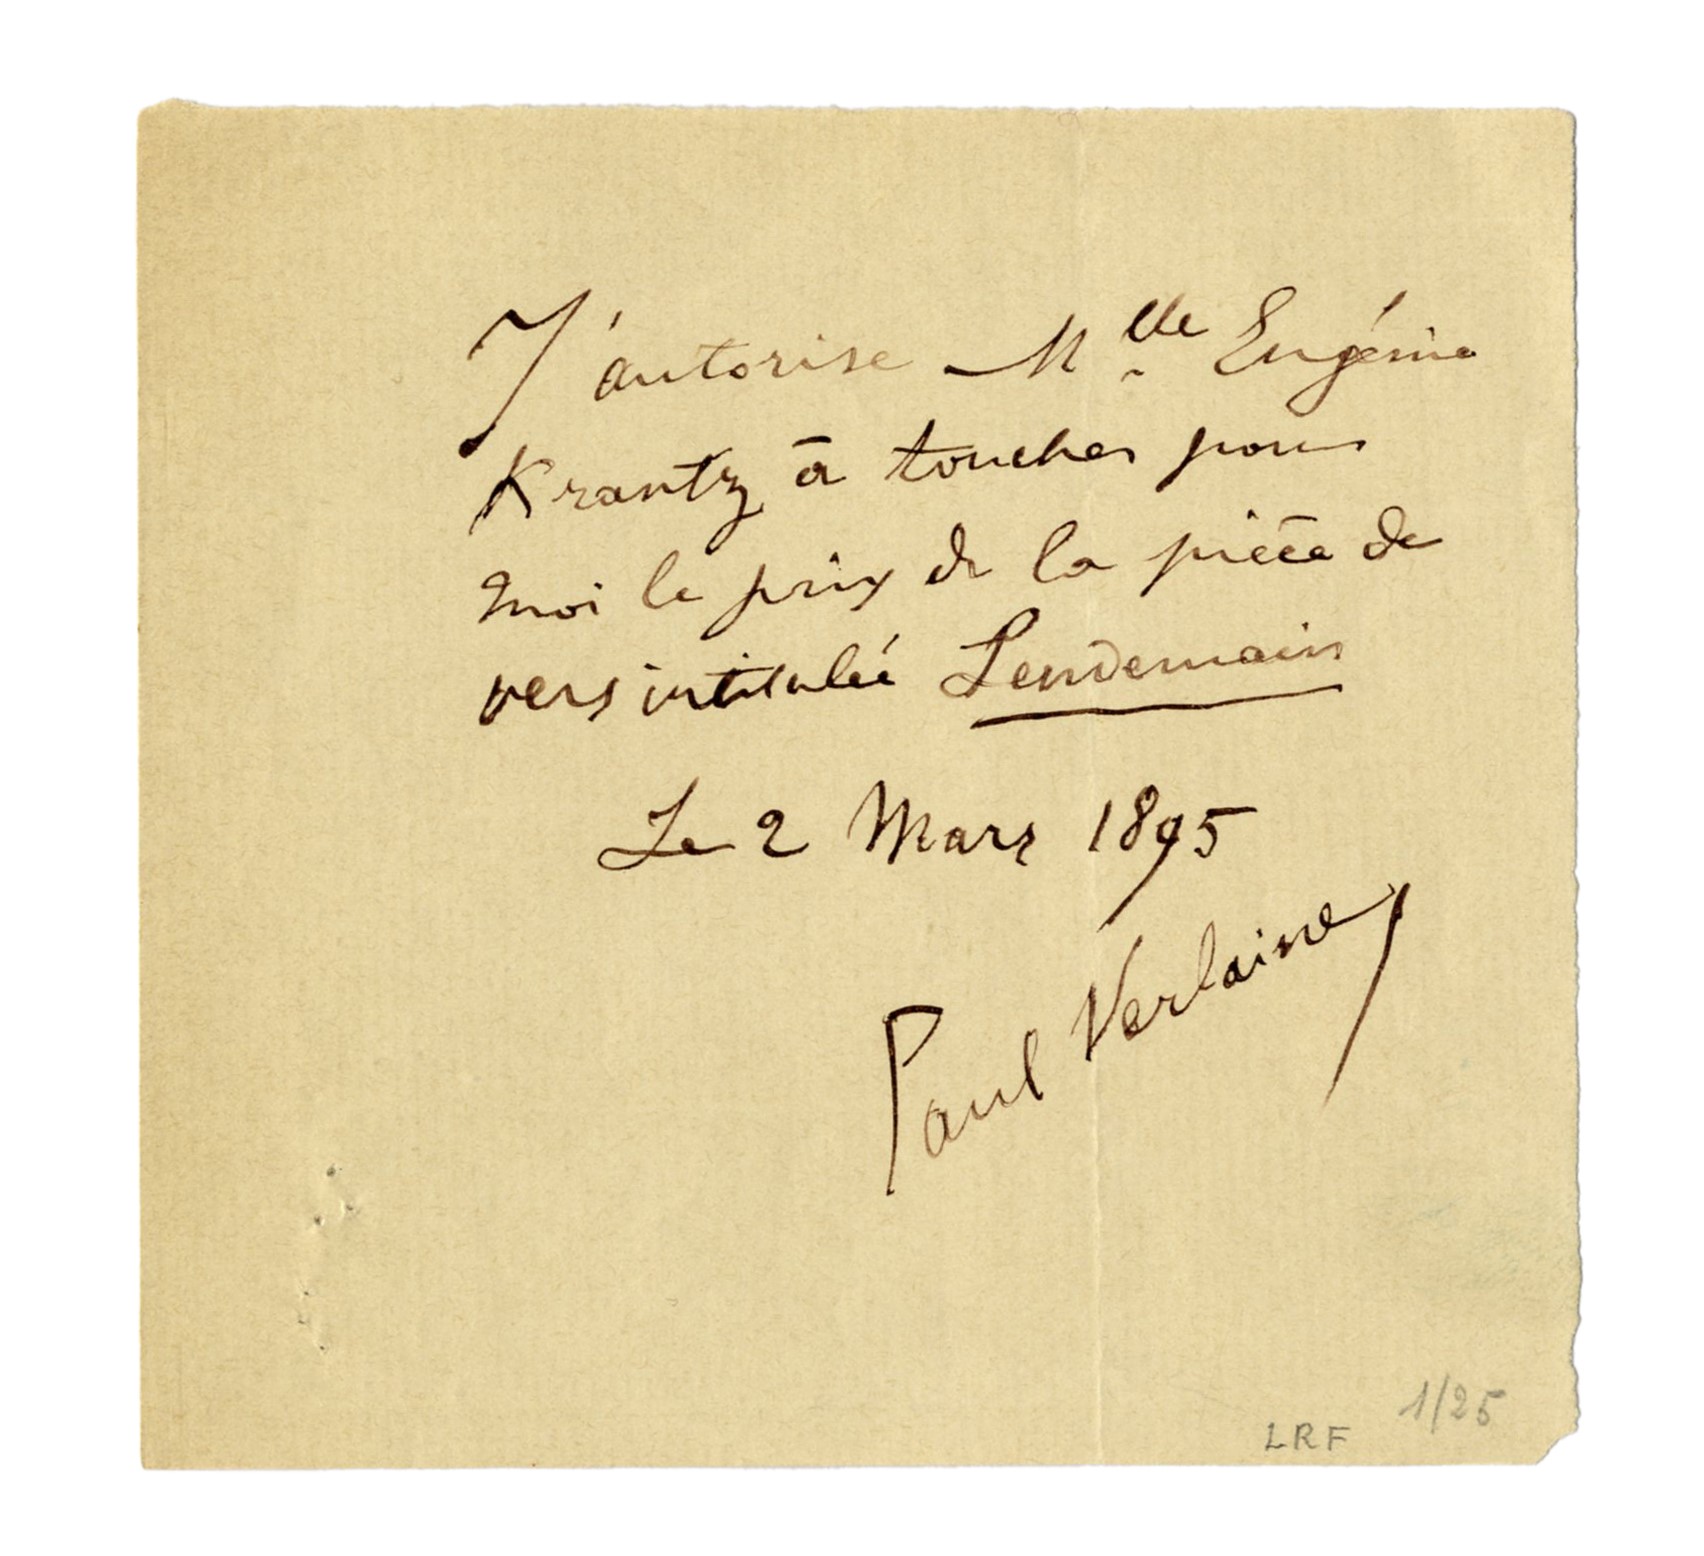 J'autorise Mlle Eugénie
Krantz à toucher pour
moi le prix de la pièce de
vers intitulée Lendemain
Le 2 Mars 1895
Paul Verlaine
1/25
LRF